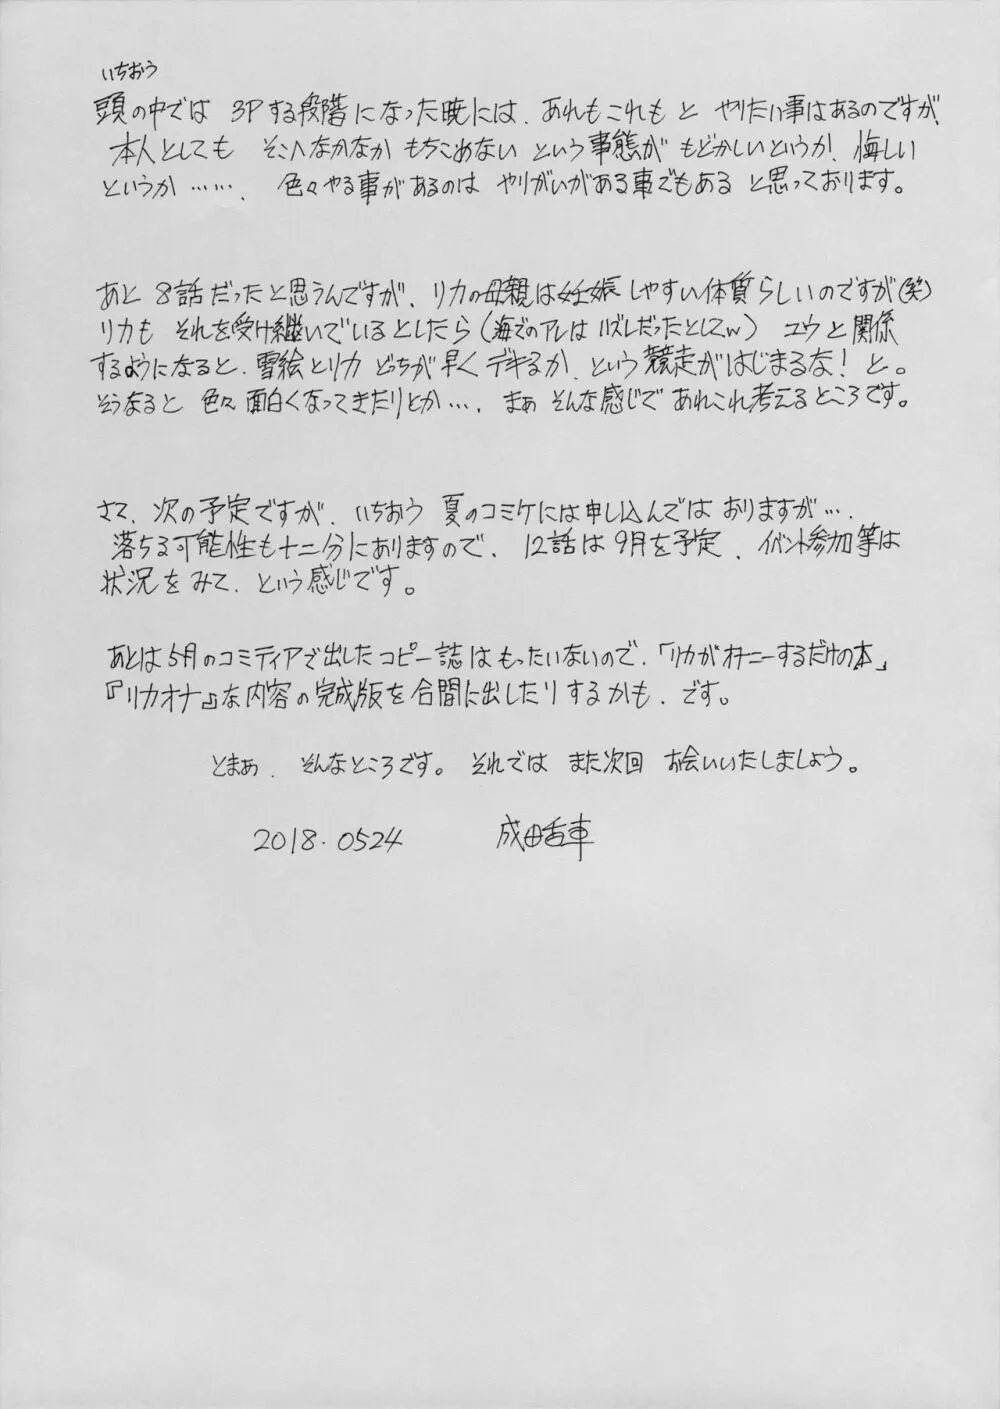 いちおう
頭の中では 3Pする段階になった暁には、あれもこれもと やりたい事はあるのですが、
本人としても そこへなかなか もちこめない という事態が もどかしいというか、悔しい
というか……、 色々やる事があるのは やりがいがある事でもある と思っております。
あと 8話だったと思うんですが、リカの母親は妊娠しやすい体質らしいのですが(笑)
リカも それを受け継いでいるとしたら(海でのアレは ハズレだったとしてw) ユウと関係
するようになると、雪絵とリカ どっちが早くデキるか、という競走がはじまるな! と。
そうなると 色々面白くなってきたりとか…、まぁ そんな感じで あれこれ考えるところです。
さて、次の予定ですが、いちおう 夏のコミケには申し込んでは おりますが…、
落ちる可能性も十二分にありますので、 12話は9月を予定、イベント参加等は
状況をみて、という感じです。
あとは5月のコミティアで出したコピー誌はもったいないので、「リカがオナニーするだけの本」
『リカオナ』な内容の完成版を合間に出したりするかも、です。
とまぁ、そんなところです。それでは また次回 お会いいたしましょう。
2018.0524 成田香車